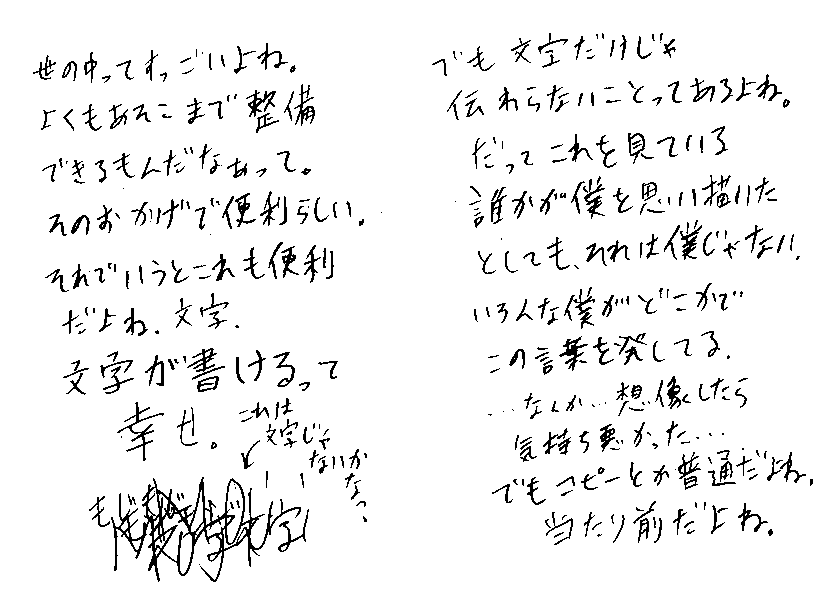 世の中ってすっごいよね。
よくもあそこまで整備
できるもんだなぁって。
そのおかげで便利らしい。
それでいうとこれも便利
だよね、文字、
文字が書けるって
幸せ。
これは
文字じゃ
ないか
なっ
でも文字だけじゃ
伝わらないことってあるよね。
だってこれを見ている
誰かが僕を思い描いた
としても、それは僕じゃない、
いろんな僕がどこかで
この言葉を発してる、
…なんか…想像したら
気持ち悪かった…
でもコピーとか普通だよね、
当たり前だよね。